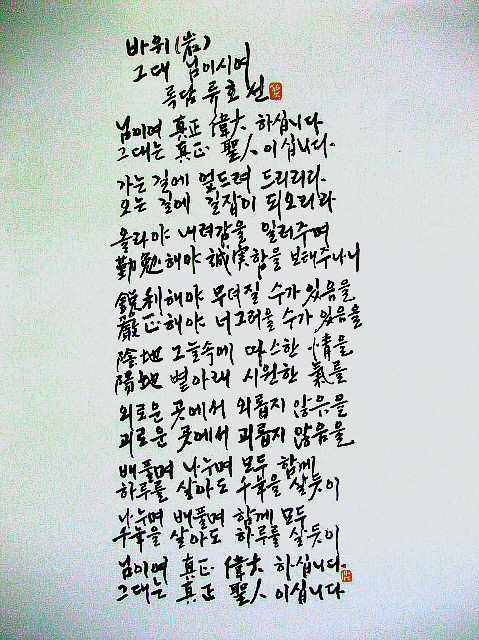 바위(岩)
그대 님이시여
목담 류호선
님이여 真正 偉大 하십니다
그대는 真正 聖人 이십니다.
가는 길에 엎드려 드리리다.
오는 길에 길잡이 되오리라
올라야 내려감을 일러주며
勤勉해야 誠実함을 보태주나니
鋭利해야 무뎌질 수가 있음을
嚴正해야 너그러울 수가 있음을
陰地 그늘속에 따스한 情을
陽地 볕아래 시원한 氣를
외로운 곳에서 외롭지 않음을
괴로운 곳에서 괴롭지 않음을
베풀며 나누며 모두 함께
하루를 살아도 千年을 살듯이
나누며 베풀며 함께 모두
千年을 살아도 하루를 살듯이
님이여 真正 偉大 하십니다.
그대는 真正 聖人 이십니다